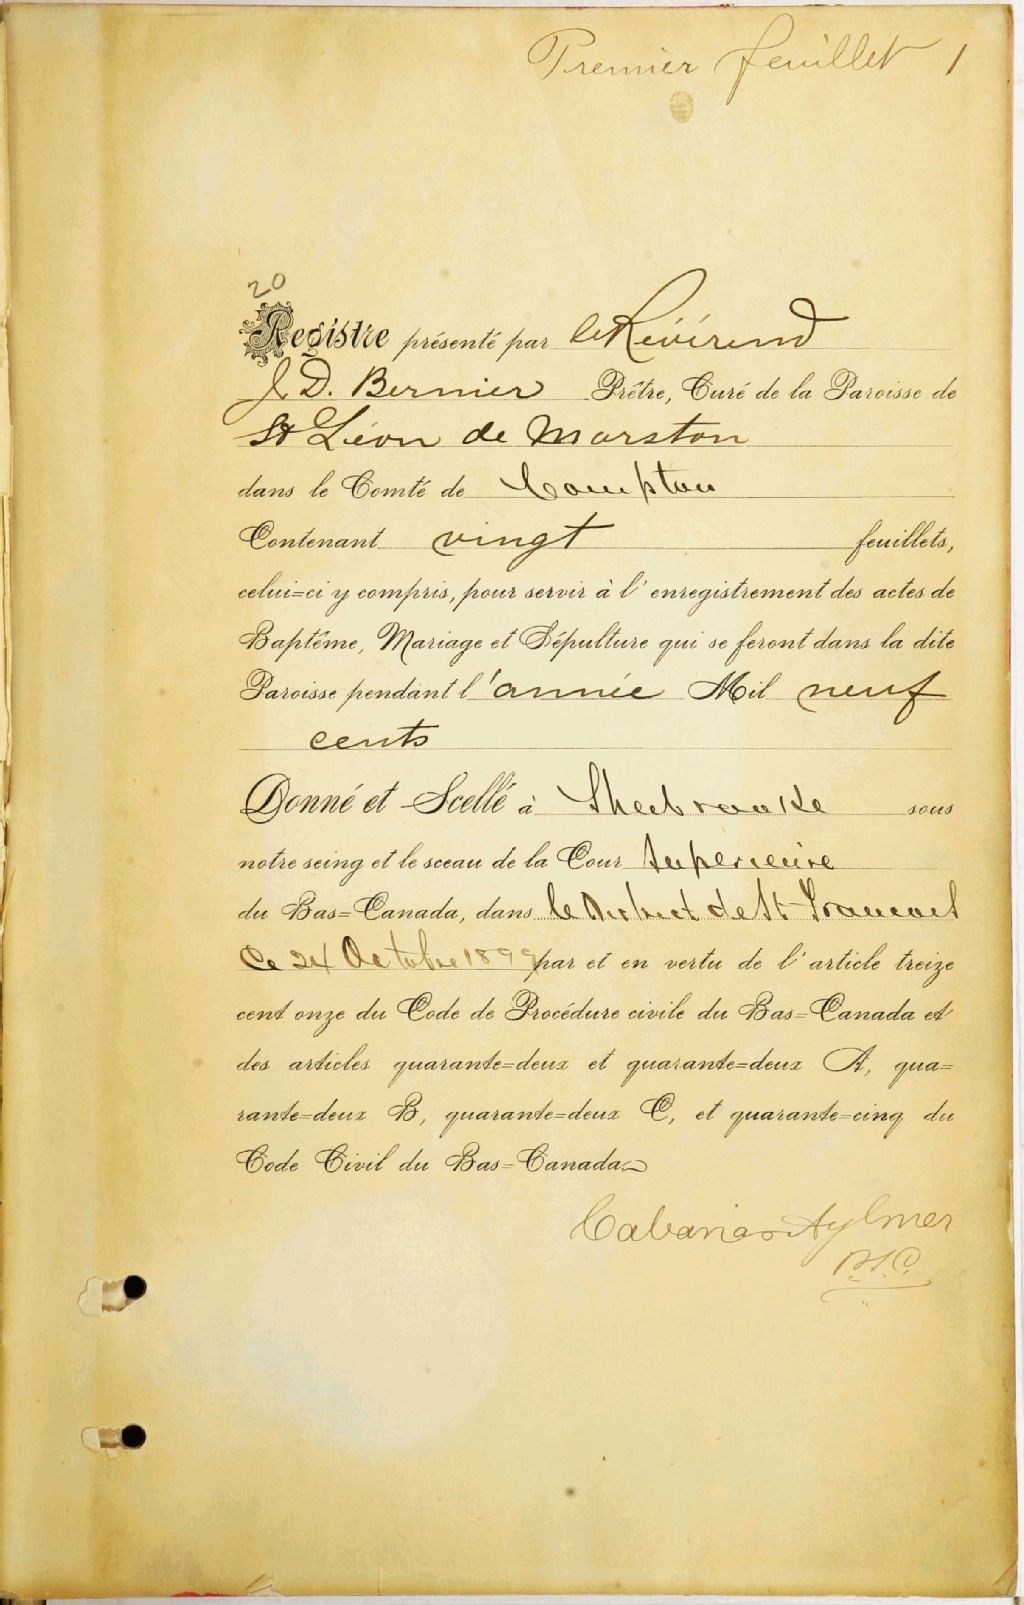 Premier feuillet 1
20
Registre présenté par le Révérend
J. D. Bernier Prêtre, Curé de la Paroisse de
St Léon de Marston
dans le Comté de Compton
Contenant vingt feuillets,
celui=ci y compris, pour servir à l'enregistrement des actes de
Baptême, Mariage et Sépulture qui se feront dans la dite
Paroisse pendant l'année Mil neuf
cents
Donné et Scellé à Sherbrooke sous
notre seing et le sceau de la Cour Superieure
du Bas=Canada, dans le District de St Francois
Ce 24 Octobre 1899 par et en vertu de l'article treize
cent onze du Code de Procédure civile du Bas=Canada et
des articles quarante=deux et quarante=deux A, qua=
rante=deux B, quarante=deux C, et quarante=cinq du
Code Civil du Bas=Canada.
Cabana & Aylmer
P.S.C.